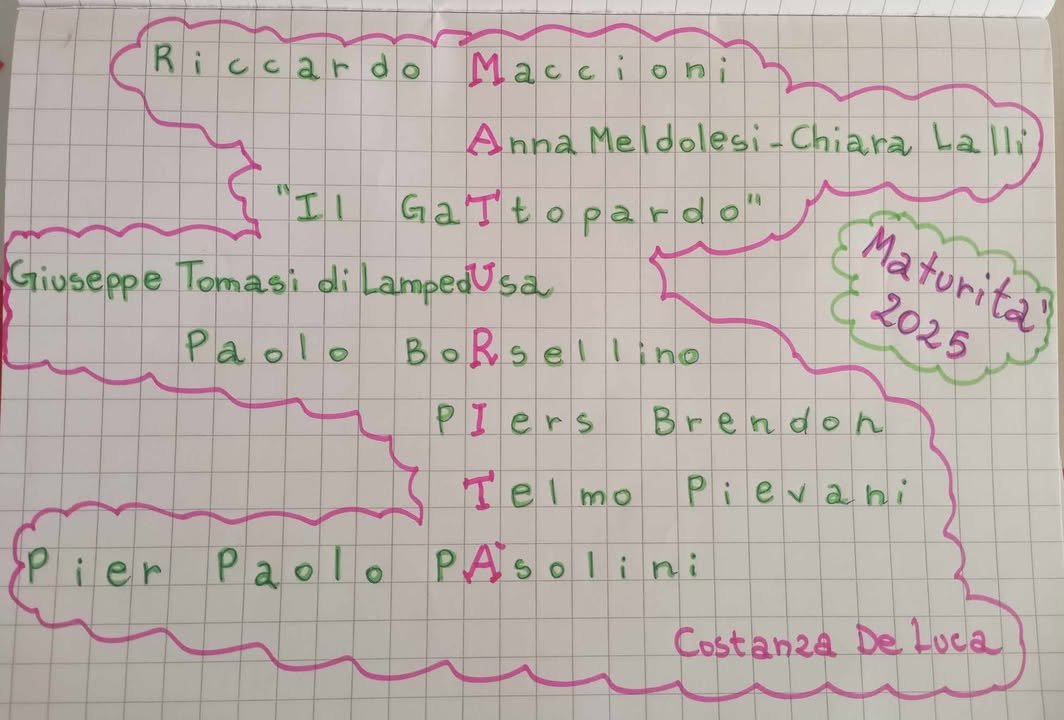 Riccardo Maccioni
Anna Meldolesi-Chiara Lalli
"Il GaTtopardo"
Giuseppe Tomasi di LampedUsa
Maturità
2025
Paolo BoRsellino
PIers Brendon
Telmo Pievani
Pier Paolo PÀsolini
Costanza De Luca